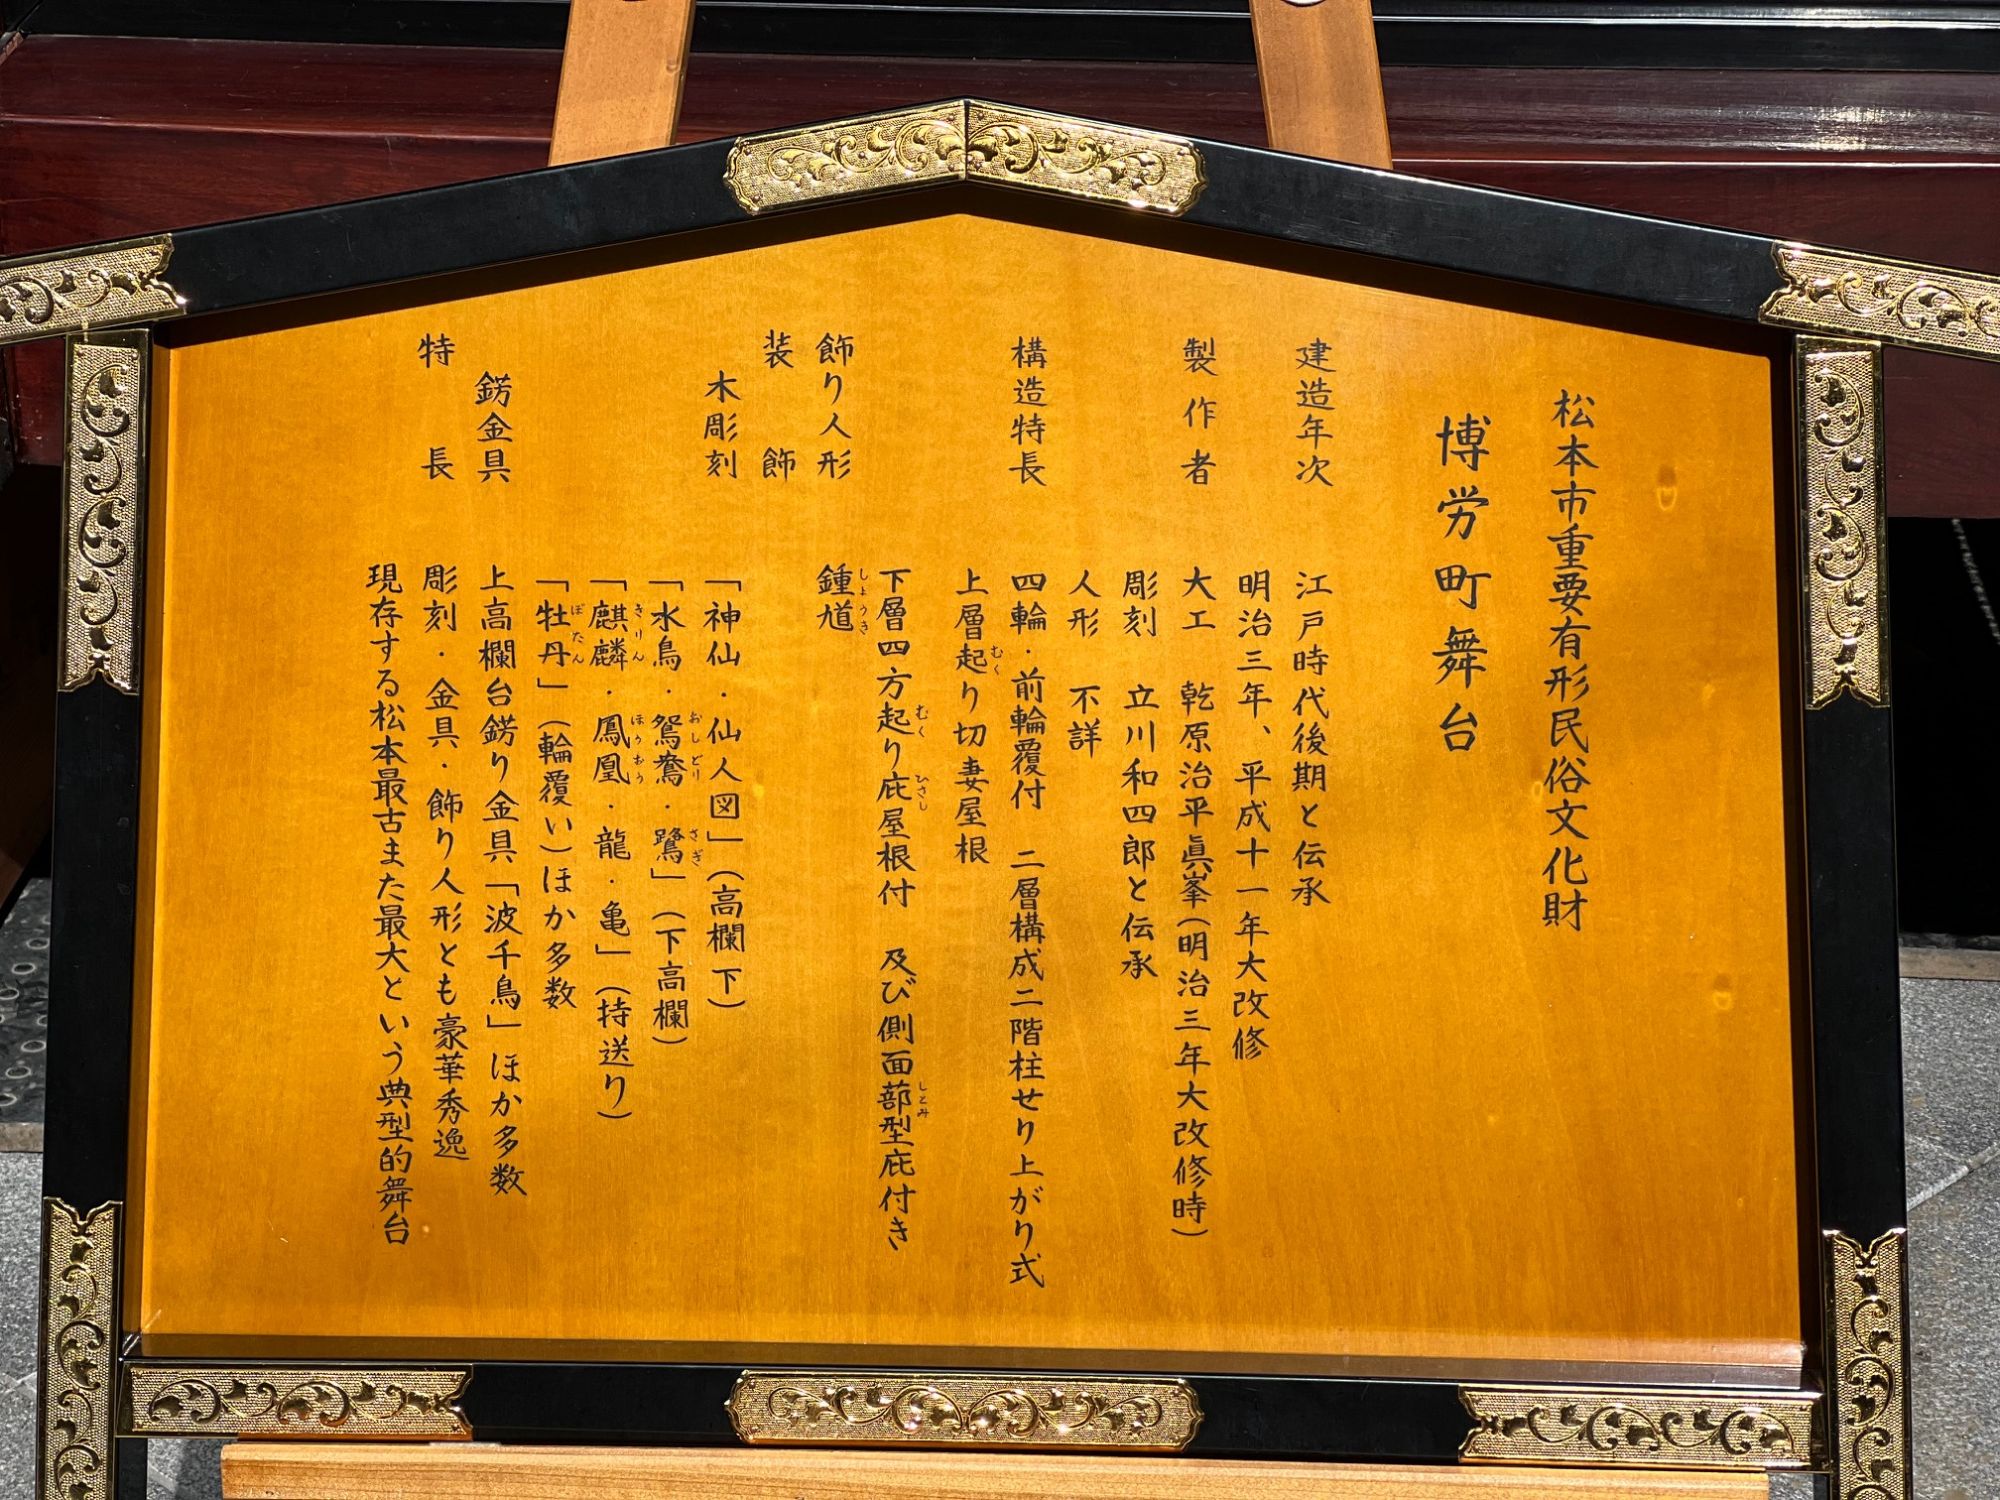 松本市重要有形民俗文化財
博労町舞台
建造年次　江戸時代後期と伝承
明治三年、平成十一年大改修
製作者　大工　乾原治平眞峯（明治三年大改修時）
彫刻　立川和四郎と伝承
人形　不詳
構造特長　四輪・前輪覆付　二層構成二階柱せり上がり式
上層起り切妻屋根
むく
下層四方起り庇屋根付　及び側面蔀型庇付き
むく　ひさし　しとみ
飾り人形　鍾馗
しょうき
装飾
木彫刻　「神仙・仙人図」（高欄下）
「水鳥・鴛鴦・鷺」（下高欄）
おしどり　さぎ
「麒麟・鳳凰・龍・亀」（持送り）
きりん　ほうおう
「牡丹」（輪覆い）ほか多数
ぼたん
錺金具　上高欄台錺り金具「波千鳥」ほか多数
特長　彫刻・金具・飾り人形とも豪華秀逸
現存する松本最古また最大という典型的舞台